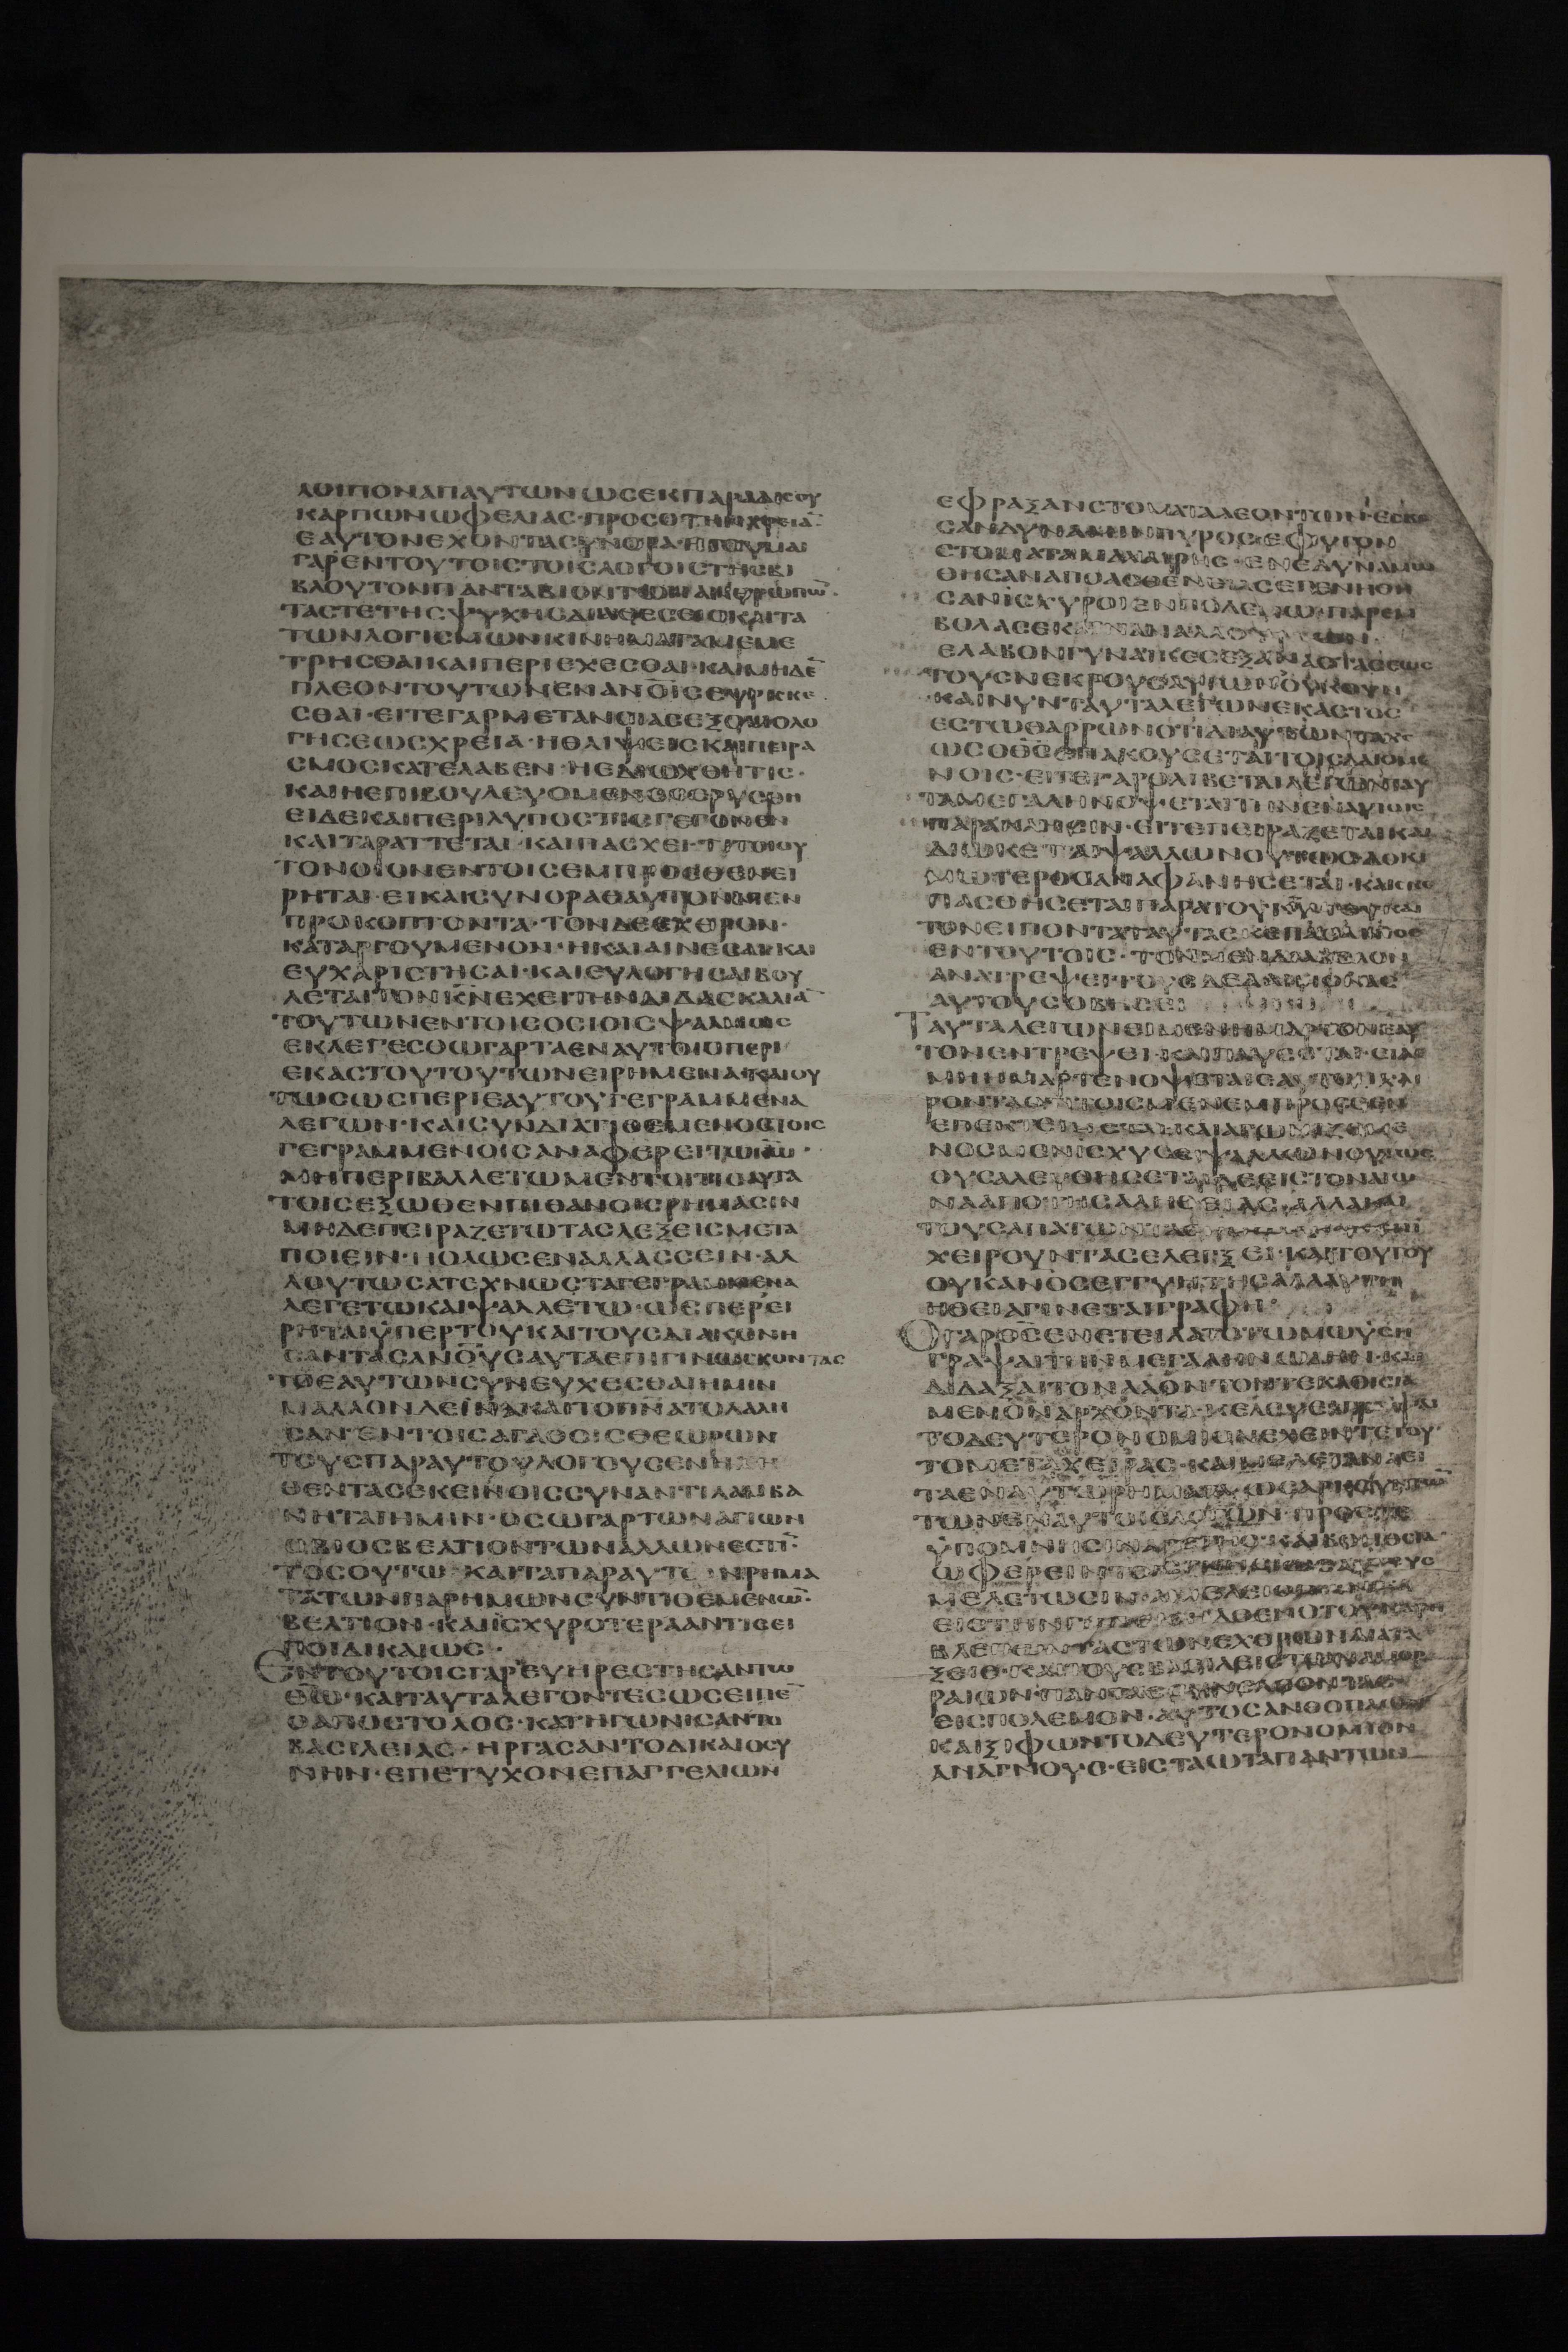 ΛΟΙΠΟΝ ΑΠ ΑΥΤΩΝ ΩϹ ΕΚ ΠΑΡΑΔΙϹΟΥ
ΚΑΡΠΩΝ ΩΦΕΛΙΑϹ· ΠΡΟϹ Ο ΤΗΝ ΧΡΕΙΑ̅
ΕΑΥΤΟΝ ΕΧΟΝΤΑ ϹΥΝΟΡΑ· ΗΓΟΥΜΑΙ
ΓΑΡ ΕΝ ΤΟΥΤΟΙϹ ΤΟΙϹ ΛΟΓΟΙϹ ΤΗϹ ΒΙ
ΒΛΟΥ ΤΟΝ ΠΑΝΤΑ ΒΙΟΝ ΤΩΝ ΑΝΘΡΩΠΩ̅·
ΤΑϹ ΤΕ ΤΗϹ ΨΥΧΗϹ ΔΙΑΘΕϹΕΙϹ ΚΑΙ ΤΑ
ΤΩΝ ΛΟΓΙϹΜΩΝ ΚΙΝΗΜΑΤΑ ΜΕΜΕ
ΤΡΗϹΘΑΙ ΚΑΙ ΠΕΡΙΕΧΕϹΘΑΙ· ΚΑΙ ΜΗΔΕ̅
ΠΛΕΟΝ ΤΟΥΤΩΝ ΕΝ ΑΝΟΙϹ ΕΥΡΙϹΚΕ
ϹΘΑΙ· ΕΙΤΕ ΓΑΡ ΜΕΤΑΝΟΙΑϹ ΕΞΟΜΟΛΟ
ΓΗϹΕΩϹ ΧΡΕΙΑ· Η ΘΛΙΨΕΙϹ ΚΑΙ ΠΕΙΡΑ
ϹΜΟϹ ΚΑΤΕΛΑΒΕΝ· Η ΕΔΙΩΧΘΗ ΤΙϹ·
ΚΑΙ Η ΕΠΙΒΟΥΛΕΥΟΜΕΝΟϹ ΕΡΥϹΘΗ
ΕΙ ΔΕ ΚΑΙ ΠΕΡΙΛΥΠΟϹ ΤΙϹ ΓΕΓΟΝΕΝ
ΚΑΙ ΤΑΡΑΤΤΕΤΑΙ· ΚΑΙ ΠΑϹΧΕΙ ΤΙ ΤΟΙΟΥ
ΤΟΝ ΟΙΟΝ ΕΝ ΤΟΙϹ ΕΜΠΡΟϹΘΕΝ ΕΙ
ΡΗΤΑΙ· ΕΙ ΚΑΙ ϹΥΝΟΡΑ ΘΑΥΤΟΝ ΜΕΝ
ΠΡΟΚΟΠΤΟΝΤΑ· ΤΟΝ ΔΕ ΕΧΘΡΟΝ·
ΚΑΤΑΡΓΟΥΜΕΝΟΝ· Η ΚΑΙ ΑΙΝΕϹΑΙ ΚΑΙ
ΕΥΧΑΡΙϹΤΗϹΑΙ· ΚΑΙ ΕΥΛΟΓΗϹΑΙ ΒΟΥ
ΛΕΤΑΙ ΤΟΝ Κ̅Ν̅ ΕΧΕΙ ΤΗΝ ΔΙΔΑϹΚΑΛΙΑ̅
ΤΟΥΤΩΝ ΕΝ ΤΟΙϹ ΟϹΙΟΙϹ ΨΑΛΜΟΙϹ
ΕΚΛΕΓΕϹΘΩ ΓΑΡ ΤΑ ΕΝ ΑΥΤΟΙϹ ΠΕΡΙ
ΕΚΑϹΤΟΥ ΤΟΥΤΩΝ ΕΙΡΗΜΕΝΑ ΚΑΙ ΟΥ
ΤΩϹ ΩϹ ΠΕΡΙ ΕΑΥΤΟΥ ΓΕΓΡΑΜΜΕΝΑ
ΛΕΓΩΝ· ΚΑΙ ϹΥΝΔΙΑΤΙΘΕΜΕΝΟϹ ΤΟΙϹ
ΓΕΓΡΑΜΜΕΝΟΙϹ ΑΝΑΦΕΡΕΙ ΤΩ Κ̅Ω̅·
ΜΗ ΠΕΡΙΒΑΛΛΕΤΩ ΜΕΝΤΟΙ ΤΙϹ ΑΥΤΑ
ΤΟΙϹ ΕΞΩΘΕΝ ΠΙΘΑΝΟΙϹ ΡΗΜΑϹΙΝ
ΜΗΔΕ ΠΕΙΡΑΖΕΤΩ ΤΑϹ ΛΕΞΕΙϹ ΜΕΤΑ
ΠΟΙΕΙΝ· Η ΟΛΩϹ ΕΝΑΛΛΑϹϹΕΙΝ· ΑΛ
Λ ΟΥΤΩϹ ΑΤΕΧΝΩϹ ΤΑ ΓΕΓΡΑΜΜΕΝΑ
ΛΕΓΕΤΩ ΚΑΙ ΨΑΛΛΕΤΩ· ΩϹΠΕΡ ΕΙ
ΡΗΤΑΙ ΥΠΕΡ ΤΟΥ ΚΑΙ ΤΟΥϹ ΔΙΑΚΟΝΗ
ϹΑΝΤΑϹ ΑΝΟΥϹ ΑΥΤΑ ΕΠΙΓΙΝΩϹΚΟΝΤΑϹ
ΤΟ ΕΑΥΤΩΝ ϹΥΝΕΥΧΕϹΘΑΙ ΗΜΙΝ
ΜΑΛΛΟΝ ΔΕ ΙΝΑ ΚΑΙ ΤΟ Π̅Ν̅Α̅ ΤΟ ΛΑΛΗ
ϹΑΝ ΕΝ ΤΟΙϹ ΑΓΙΟΙϹ ΘΕΩΡΩΝ
ΤΟΥϹ ΠΑΡ ΑΥΤΟΥ ΛΟΓΟΥϹ ΕΝΗΧΗ
ΘΕΝΤΑϹ ΕΚΕΙΝΟΙϹ ϹΥΝΑΝΤΙΛΑΜΒΑ
ΝΗΤΑΙ ΗΜΙΝ· ΟϹΩ ΓΑΡ ΤΩΝ ΑΓΙΩΝ
Ο ΒΙΟϹ ΒΕΛΤΙΟΝ ΤΩΝ ΑΛΛΩΝ ΕϹΤΙ̅·
ΤΟϹΟΥΤΩ ΚΑΙ ΤΑ ΠΑΡ ΑΥΤΩΝ ΡΗΜΑ
ΤΑ ΤΩΝ ΠΑΡ ΗΜΩΝ ϹΥΝΤΙΘΕΜΕΝΩ̅·
ΒΕΛΤΙΟΝ· ΚΑΙ ΙϹΧΥΡΟΤΕΡΑ ΑΝ ΤΙϹ ΕΙ
ΠΟΙ ΔΙΚΑΙΩϹ·
ΕΝ ΤΟΥΤΟΙϹ ΓΑΡ ΕΥΗΡΕϹΤΗϹΑΝ ΤΩ
Θ̅Ω̅· ΚΑΙ ΤΑΥΤΑ ΛΕΓΟΝΤΕϹ ΩϹ ΕΙΠΕ̅
Ο ΑΠΟϹΤΟΛΟϹ· ΚΑΤΗΓΩΝΙϹΑΝΤΟ
ΒΑϹΙΛΕΙΑϹ· ΗΡΓΑϹΑΝΤΟ ΔΙΚΑΙΟϹΥ
ΝΗΝ· ΕΠΕΤΥΧΟΝ ΕΠΑΓΓΕΛΙΩΝ
ΕΦΡΑΞΑΝ ϹΤΟΜΑΤΑ ΛΕΟΝΤΩΝ· ΕϹΒΕ
ϹΑΝ ΔΥΝΑΜΙΝ ΠΥΡΟϹ· ΕΦΥΓΟΝ
ϹΤΟΜΑΤΑ ΜΑΧΑΙΡΗϹ· ΕΝΕΔΥΝΑΜΩ
ΘΗϹΑΝ ΑΠΟ ΑϹΘΕΝΕΙΑϹ ΕΓΕΝΗΘΗ
ϹΑΝ ΙϹΧΥΡΟΙ ΕΝ ΠΟΛΕΜΩ· ΠΑΡΕΜ
ΒΟΛΑϹ ΕΚΛΙΝΑΝ ΑΛΛΟΤΡΙΩΝ
ΕΛΑΒΟΝ ΓΥΝΑΙΚΕϹ ΕΞ ΑΝΑϹΤΑϹΕΩϹ
ΤΟΥϹ ΝΕΚΡΟΥϹ ΑΥΤΩΝ
ΚΑΙ ΝΥΝ ΤΑΥΤΑ ΛΕΓΩΝ ΕΚΑϹΤΟϹ
ΕϹΤΩ ΘΑΡΡΩΝ ΟΤΙ ΔΙ ΑΥΤΩΝ ΤΑΧΕ
ΩϹ Ο Θ̅Ϲ̅ ΕΠΑΚΟΥϹΕΤΑΙ ΤΟΙϹ ΔΕΟΜΕ
ΝΟΙϹ· ΕΙΤΕ ΓΑΡ ΘΛΙΒΕΤΑΙ ΛΕΓΩΝ ΤΑΥ
ΤΑ ΜΕΓΑΛΗΝ ΟΨΕΤΑΙ ΤΗΝ ΕΝ ΑΥΤΟΙϹ
ΠΑΡΑΚΛΗϹΙΝ· ΕΙΤΕ ΠΕΙΡΑΖΕΤΑΙ ΚΑΙ
ΔΙΩΚΕΤΑΙ ΨΑΛΛΩΝ ΟΥΤΩϹ ΔΟΚΙ
ΜΩΤΕΡΟϹ ΑΝΑΦΑΝΗϹΕΤΑΙ· ΚΑΙ ϹΚΕ
ΠΑϹΘΗϹΕΤΑΙ ΠΑΡΑ ΤΟΥ Κ̅Υ̅
ΤΟΝ ΕΙΠΟΝΤΑ ΤΑΥΤΑ ϹΚΕΠΑϹΑΝΤΟϹ
ΕΝ ΤΟΥΤΟΙϹ· ΤΟΝ ΜΕΝ ΔΙΑΒΟΛΟΝ
ΑΝΑΤΡΕΨΕΙ ΤΟΥϹ ΔΕ ΔΑΙΜΟΝΑϹ
ΑΥΤΟΥ ϹΟΒΗϹΕΙ
ΤΑΥΤΑ ΛΕΓΩΝ ΕΙ ΜΕΝ ΗΜΑΡΤΕΝ ΕΑΥ
ΤΟΝ ΕΝΤΡΕΨΕΙ· ΚΑΙ ΠΑΥϹΕΤΑΙ· ΕΙ ΔΕ
ΜΗ ΗΜΑΡΤΕΝ ΟΨΕΤΑΙ ΕΑΥΤΟΝ ΧΑΙ
ΡΟΝΤΑ ΤΟΙϹ ΜΕΝ ΕΜΠΡΟϹΘΕΝ
ΕΠΕΚΤΕΙΝΕΤΑΙ ΚΑΙ ΑΓΩΝΙΖΟΜΕ
ΝΟϹ ΜΕΝ ΙϹΧΥϹΕΙ ΨΑΛΛΩΝ ΟΥΤΩϹ
ΟΥ ϹΑΛΕΥΘΗϹΕΤΑΙ ΔΕ ΕΙϹ ΤΟΝ ΑΙΩ
ΝΑ ΑΠΟ ΤΗϹ ΑΛΗΘΕΙΑϹ ΑΛΛΑ ΚΑΙ
ΤΟΥϹ ΑΠΑΤΩΝΤΑϹ
ΧΕΙΡΟΥΝΤΑϹ ΕΛΕΓΞΕΙ· ΚΑΙ ΤΟΥΤΟΥ
ΟΥΚ ΑΝΟϹ ΕΓΓΥΗΤΗϹ ΑΛΛ ΑΥΤΗ
Η ΘΕΙΑ ΓΙΝΕΤΑΙ ΓΡΑΦΗ·
Ο ΓΑΡ Θ̅Ϲ̅ ΕΝΕΤΕΙΛΑΤΟ ΤΩ ΜΩΥϹΗ
ΓΡΑΨΑΙ ΤΗΝ ΜΕΓΑΛΗΝ ΩΔΗΝ· ΚΑΙ
ΔΙΔΑΞΑΙ ΤΟΝ ΛΑΟΝ ΤΟΝ ΤΕ ΚΑΘΙϹΤΑ
ΜΕΝΟΝ ΑΡΧΟΝΤΑ· ΚΕΛΕΥΕΙ ΓΡΑΨΑΙ
ΤΟ ΔΕΥΤΕΡΟΝΟΜΙΟΝ ΕΧΕΙΝ ΤΕ ΤΟΥ
ΤΟ ΜΕΤΑ ΧΕΙΡΑϹ· ΚΑΙ ΜΕΛΕΤΑΝ ΑΕΙ
ΤΑ ΕΝ ΑΥΤΩ ΡΗΜΑΤΑ· ΩϹ ΑΡΚΟΥΝΤΩ̅
ΤΩΝ ΕΝ ΑΥΤΩ ΛΟΓΩΝ ΠΡΟϹ ΤΕ
ΥΠΟΜΝΗϹΙΝ ΑΡΕΤΗϹ· ΚΑΙ ΒΟΗΘΕΙΑ̅
ΩΦΕΡΕΙΝ ΤΟΙϹ
ΜΕΛΕΤΩϹΙΝ·
ΕΙϹ ΤΗΝ ΓΗΝ
ΒΛΕΠΩΝ ΤΑϹ ΤΩΝ ΕΧΘΡΩΝ ΔΙΑΤΑ
ΞΕΙϹ· ΚΑΙ ΤΟΥϹ ΒΑϹΙΛΕΙϹ ΤΩΝ ΑΜΟΡ
ΡΑΙΩΝ· ΠΑΝΤΑϹ ϹΥΝΕΛΘΟΝΤΑϹ
ΕΙϹ ΠΟΛΕΜΟΝ· ΑΥΤΟϹ ΑΝΘ ΟΠΛΩΝ
ΚΑΙ ΞΙΦΩΝ ΤΟ ΔΕΥΤΕΡΟΝΟΜΙΟΝ
ΑΝΑΓΝΟΥϹ· ΕΙϹ ΤΑ ΩΤΑ ΠΑΝΤΩΝ